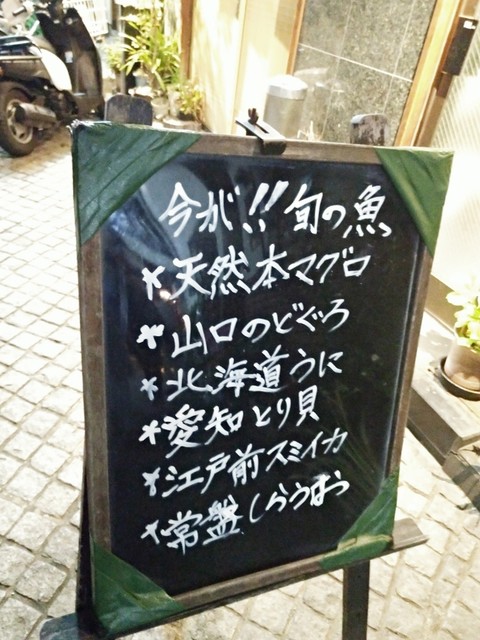 今が!!旬の魚
*天然本マグロ
*山口のどぐろ
*北海道うに
*愛知とり貝
*江戸前スミイカ
*常盤しらうお